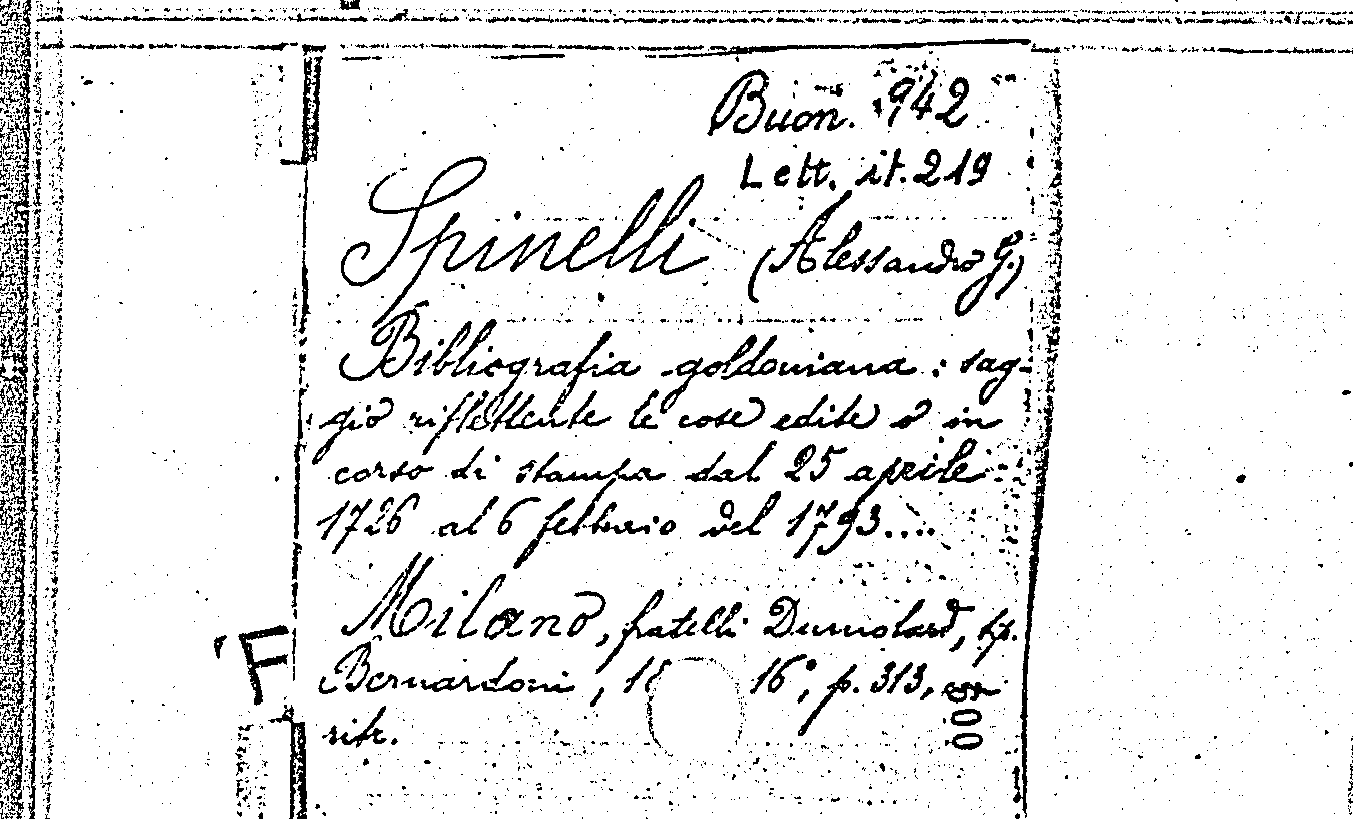 Buon. 942
Lett. it. 219
Spinelli (Alessandro G.)
Bibliografia goldoniana: sag-
gio riflettente le cose edite o in
corso di stampa dal 25 aprile
1726 al 6 febbraio del 1793....
Milano, fratelli Dumolard, tip.
Bernardoni, 16°, p. 313,
ritr.
F